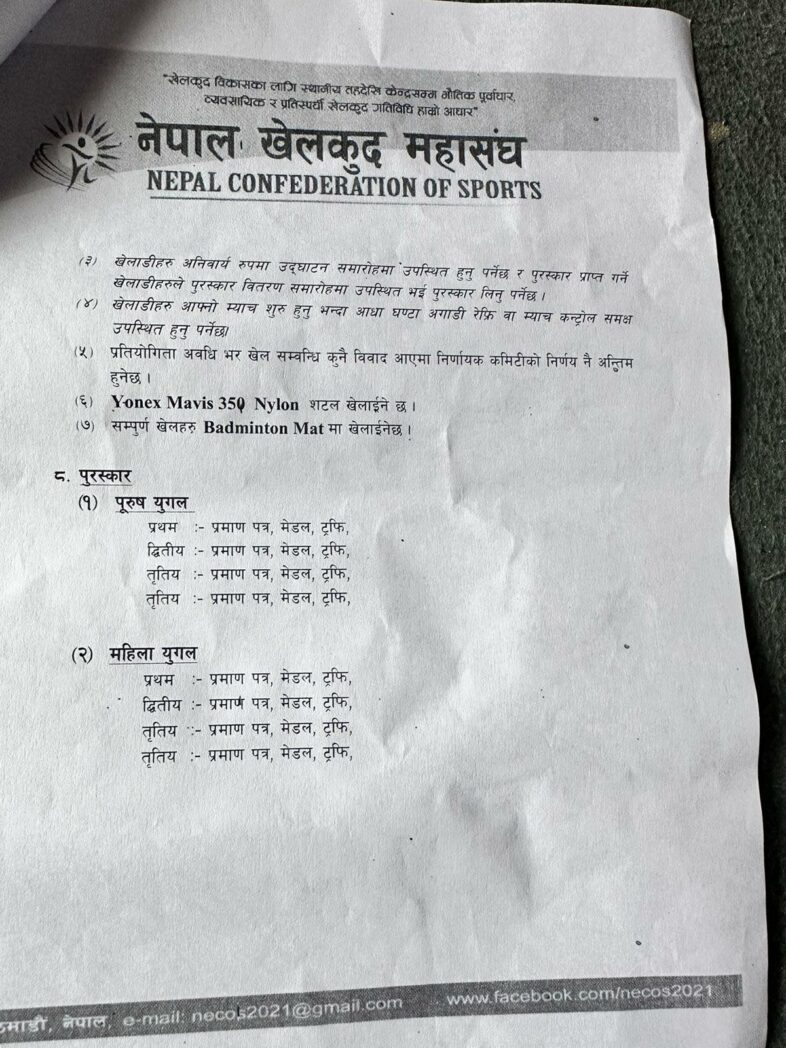 "खेलकुद विकासका लागि स्थानीय तहदेखि केन्द्रसम्म भौतिक पूर्वाधार,
व्यवसायिक र प्रतिस्पर्धी खेलकुद गतिविधि हाम्रो आधार"
नेपाल खेलकुद महासंघ
NEPAL CONFEDERATION OF SPORTS
(३) खेलाडीहरु अनिवार्य रुपमा उद्घाटन समारोहमा उपस्थित हुनु पर्नेछ र पुरस्कार प्राप्त गर्ने
खेलाडीहरुले पुरस्कार वितरण समारोहमा उपस्थित भई पुरस्कार लिनु पर्नेछ ।
(४) खेलाडीहरु आफ्नो म्याच शुरु हुनु भन्दा आधा घण्टा अगाडी रेफ्रि वा म्याच कन्ट्रोल समक्ष
उपस्थित हुनु पर्नेछ।
(५) प्रतियोगिता अवधि भर खेल सम्वन्धि कुनै विवाद आएमा निर्णायक कमिटीको निर्णय नै अन्तिम
हुनेछ ।
(६) Yonex Mavis 350 Nylon शटल खेलाईने छ ।
(७) सम्पुर्ण खेलहरु Badminton Mat मा खेलाईनेछ ।
८. पुरस्कार
(१) पूरुष युगल
प्रथम :- प्रमाण पत्र, मेडल, ट्रफि,
द्वितीय :- प्रमाण पत्र, मेडल, ट्रफि,
तृतिय :- प्रमाण पत्र, मेडल, ट्रफि,
तृतिय :- प्रमाण पत्र, मेडल, ट्रफि,
(२) महिला युगल
प्रथम :- प्रमाण पत्र, मेडल, ट्रफि,
द्वितीय :- प्रमाण पत्र, मेडल, ट्रफि,
तृतिय :- प्रमाण पत्र, मेडल, ट्रफि,
तृतिय :- प्रमाण पत्र, मेडल, ट्रफि,
नेपाल, e-mail: necos2021@gmail.com www.facebook.com/necos2021